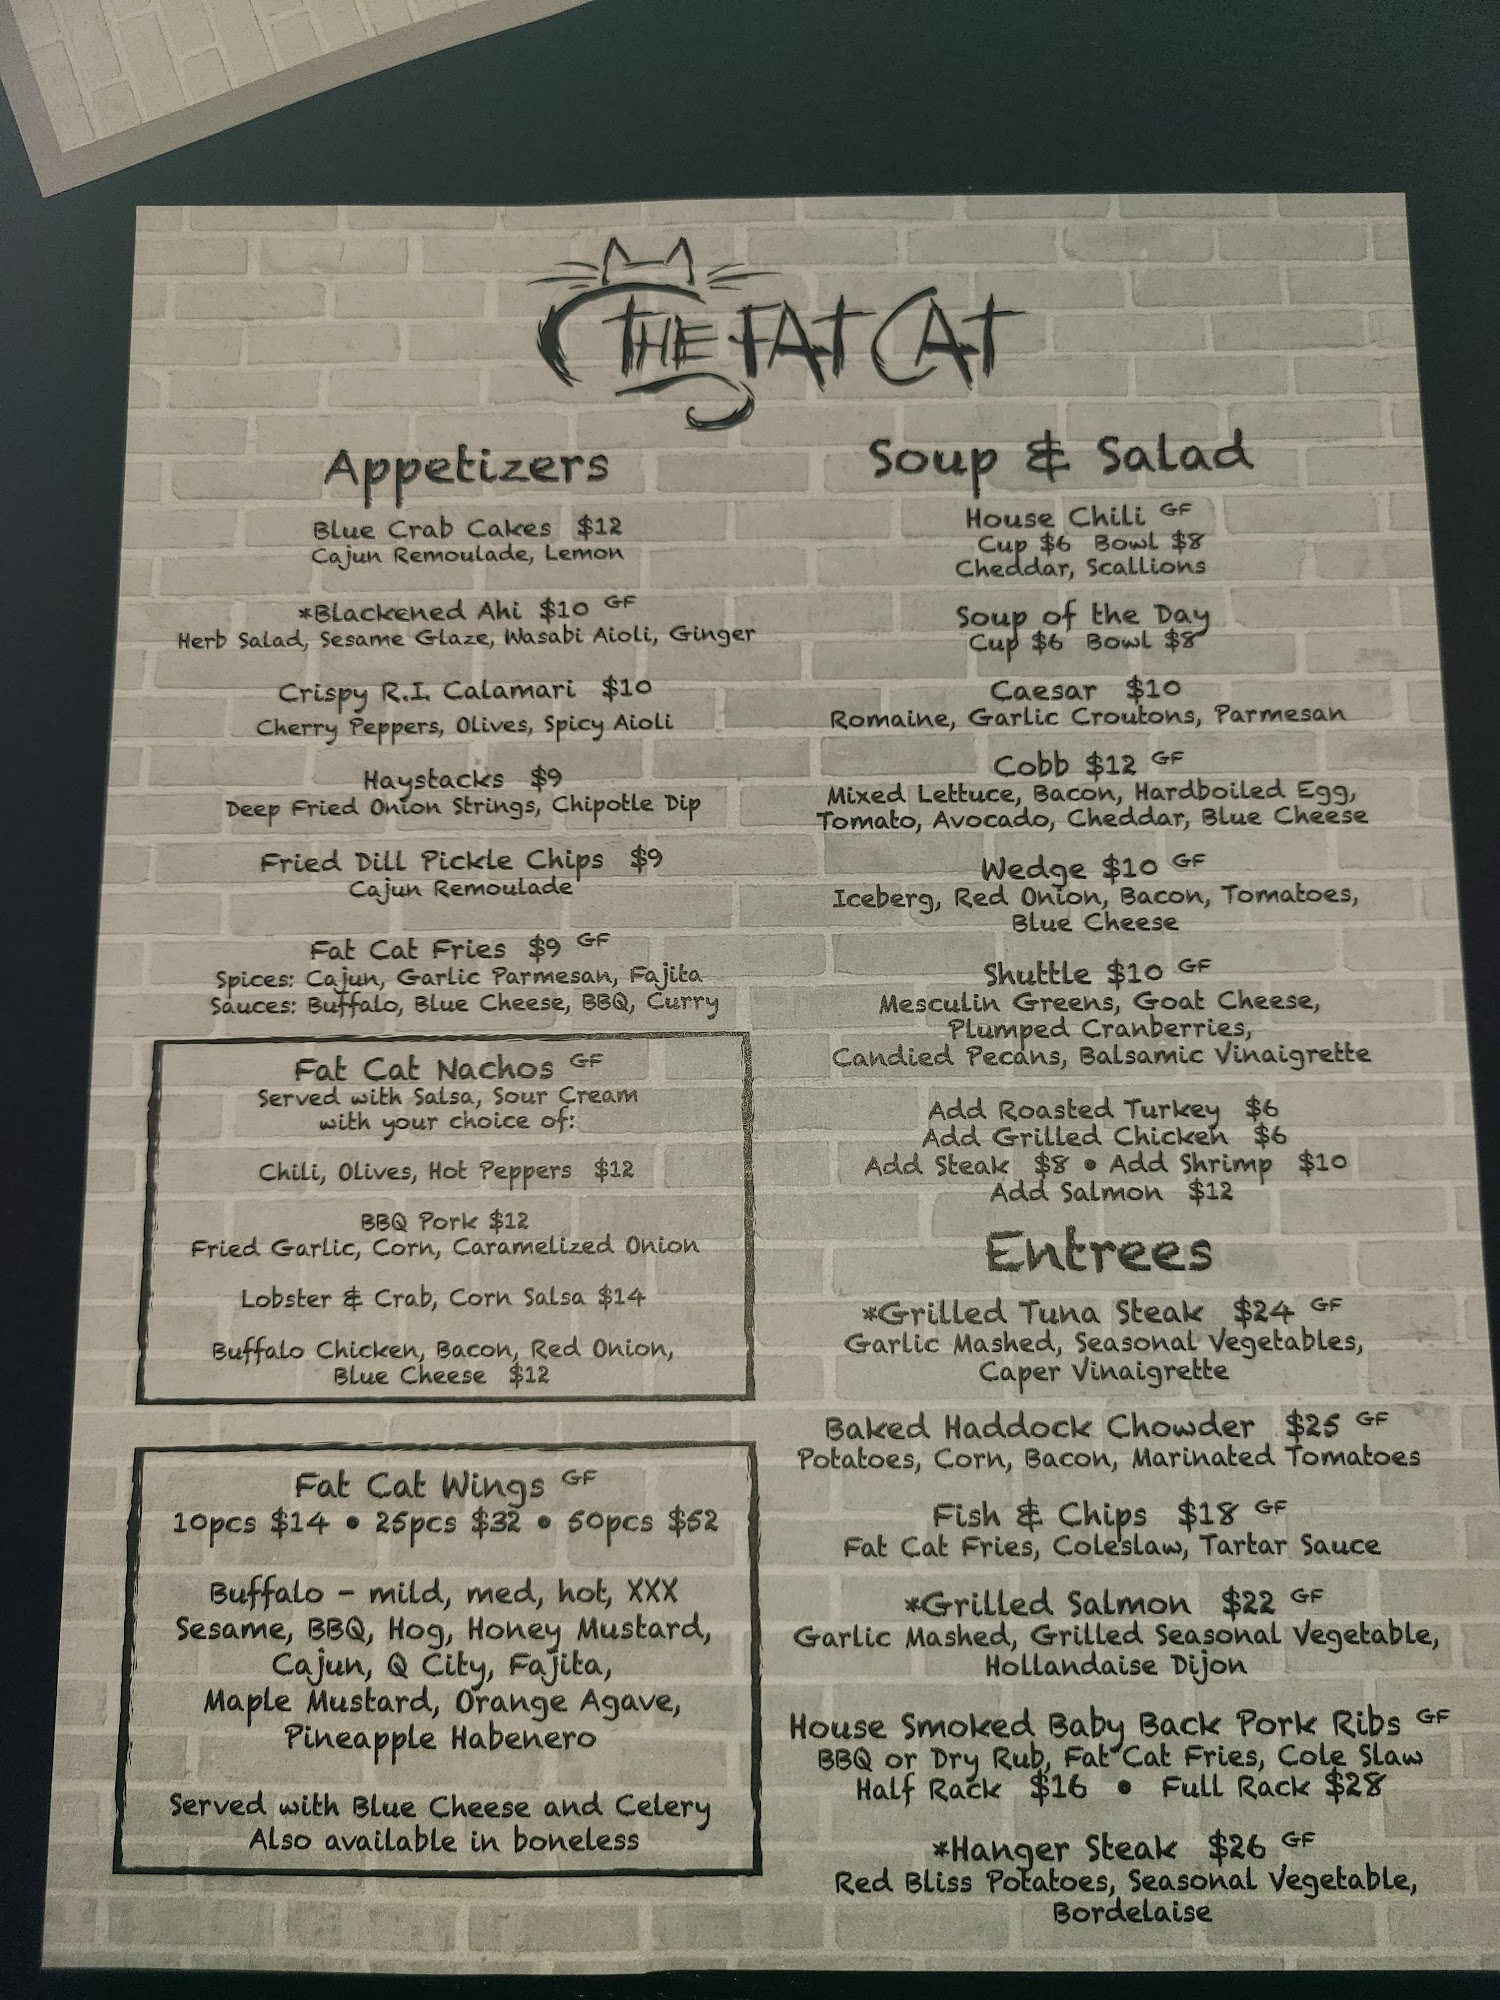 THE FAT CAT
Appetizers
Blue Crab Cakes $12
Cajun Remoulade, Lemon
*Blackened Ahi $10 GF
Herb Salad, Sesame Glaze, Wasabi Aioli, Ginger
Crispy R.I. Calamari $10
Cherry Peppers, Olives, Spicy Aioli
Haystacks $9
Deep Fried Onion Strings, Chipotle Dip
Fried Dill Pickle Chips $9
Cajun Remoulade
Fat Cat Fries $9 GF
Spices: Cajun, Garlic Parmesan, Fajita
Sauces: Buffalo, Blue Cheese, BBQ, Curry
Fat Cat Nachos GF
Served with Salsa, Sour Cream
with your choice of:
Chili, Olives, Hot Peppers $12
BBQ Pork $12
Fried Garlic, Corn, Caramelized Onion
Lobster & Crab, Corn Salsa $14
Buffalo Chicken, Bacon, Red Onion,
Blue Cheese $12
Fat Cat Wings GF
10pcs $14 • 25pcs $32 • 50pcs $52
Buffalo - mild, med, hot, XXX
Sesame, BBQ, Hog, Honey Mustard,
Cajun, Q City, Fajita,
Maple Mustard, Orange Agave,
Pineapple Habenero
Served with Blue Cheese and Celery
Also available in boneless
Soup & Salad
House Chili GF
Cup $6 Bowl $8
Cheddar, Scallions
Soup of the Day
Cup $6 Bowl $8
Caesar $10
Romaine, Garlic Croutons, Parmesan
Cobb $12 GF
Mixed Lettuce, Bacon, Hardboiled Egg,
Tomato, Avocado, Cheddar, Blue Cheese
Wedge $10 GF
Iceberg, Red Onion, Bacon, Tomatoes,
Blue Cheese
Shuttle $10 GF
Mesculin Greens, Goat Cheese,
Plumped Cranberries,
Candied Pecans, Balsamic Vinaigrette
Add Roasted Turkey $6
Add Grilled Chicken $6
Add Steak $8 • Add Shrimp $10
Add Salmon $12
Entrees
*Grilled Tuna Steak $24 GF
Garlic Mashed, Seasonal Vegetables,
Caper Vinaigrette
Baked Haddock Chowder $25 GF
Potatoes, Corn, Bacon, Marinated Tomatoes
Fish & Chips $18 GF
Fat Cat Fries, Coleslaw, Tartar Sauce
*Grilled Salmon $22 GF
Garlic Mashed, Grilled Seasonal Vegetable,
Hollandaise Dijon
House Smoked Baby Back Pork Ribs GF
BBQ or Dry Rub, Fat Cat Fries, Cole Slaw
Half Rack $16 • Full Rack $28
*Hanger Steak $26 GF
Red Bliss Potatoes, Seasonal Vegetable,
Bordelaise